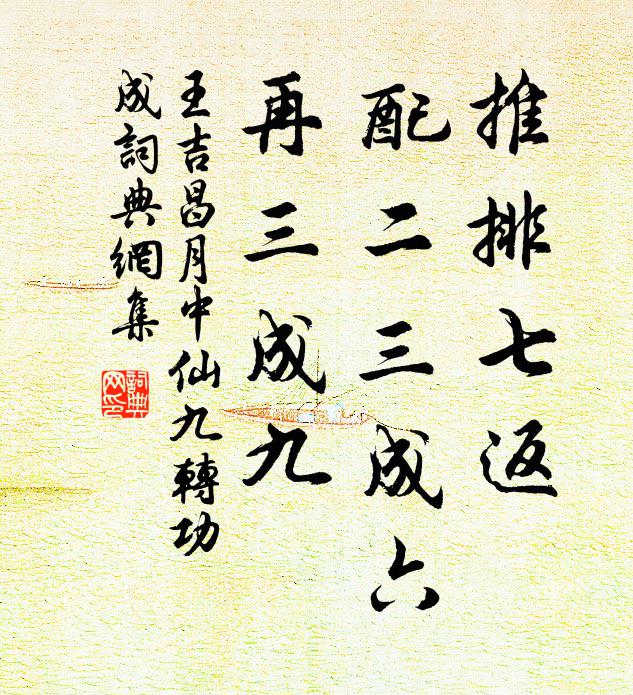 推排七返
配二三成六
再三成九
王吉昌月中仙九轉功
成詞典網集
詞典網印